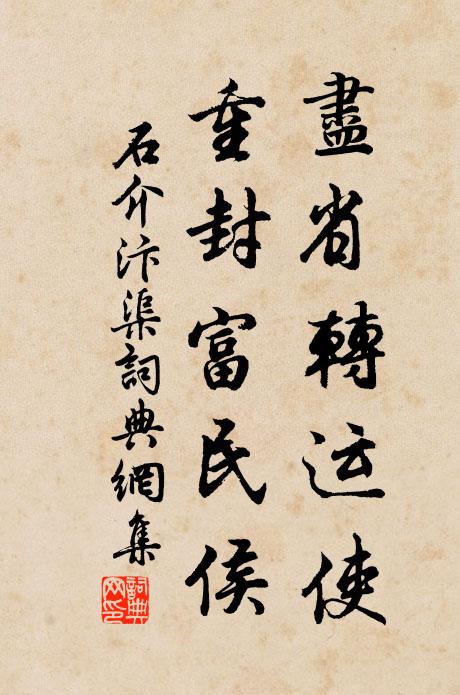 盡省轉运使
重封富民侯
石介汴渠詞典網集
詞典网印